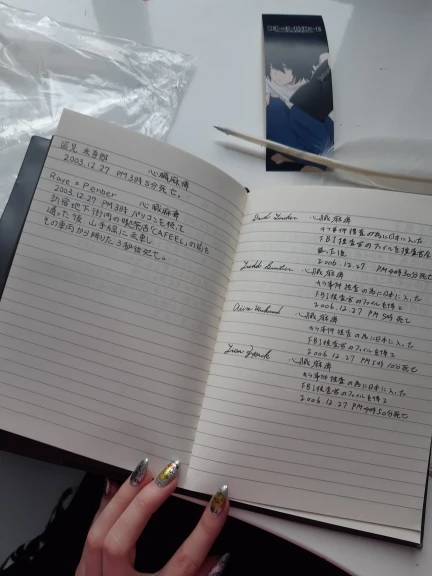 心臓麻痺
2003.12.27 PM3時5分死亡。
Raye = Penber 心臓麻痺
2003.12.27 PM3時 パソコンを持って
新宿地下街内の喫茶店「CAFEEL」の前を
通った後、山手線に乗車し
その車両から降りたら3秒後死亡。
心臓麻痺
キラ事件捜査の為に日本に入った
FBI捜査官のファイルを
た後
2006.12.27 PM4時30分死亡
心臓麻痺
キラ事件捜査の為に日本に入った
FBI捜査官のファイルを得て
2006.12.27 PM5時死亡
心臓麻痺
キラ事件捜査の為に日本に入った
FBI捜査官のファイルを得て
2006.12.27 PM5時10分死亡
心臓麻痺
キラ事件捜査の為に日本に入った
FBI捜査官のファイルを得て
2006.12.27 PM4時50分死亡